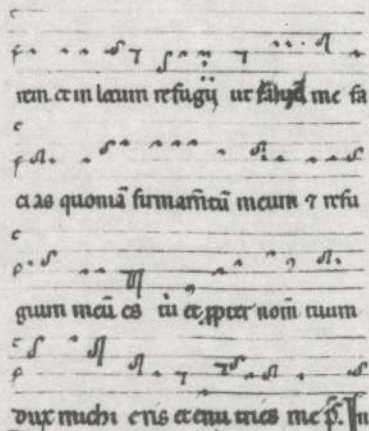 rem et in locum refugij ut saluũ me fa
cias quoniã firmam̃tũ meum ⁊ refu
gium meũ es tũ et ꝓpter nom̃ tuum
dux michi eris et enutries me p̃. In